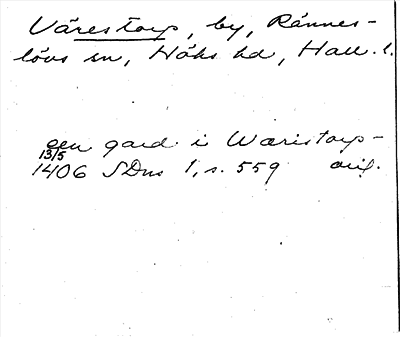 Värestorp, by, Rännes-
lövs sn, Höks hd, Hall. l.
gen gard i Waristorp -
13/5
1406 SDns 1, s. 559 orig.